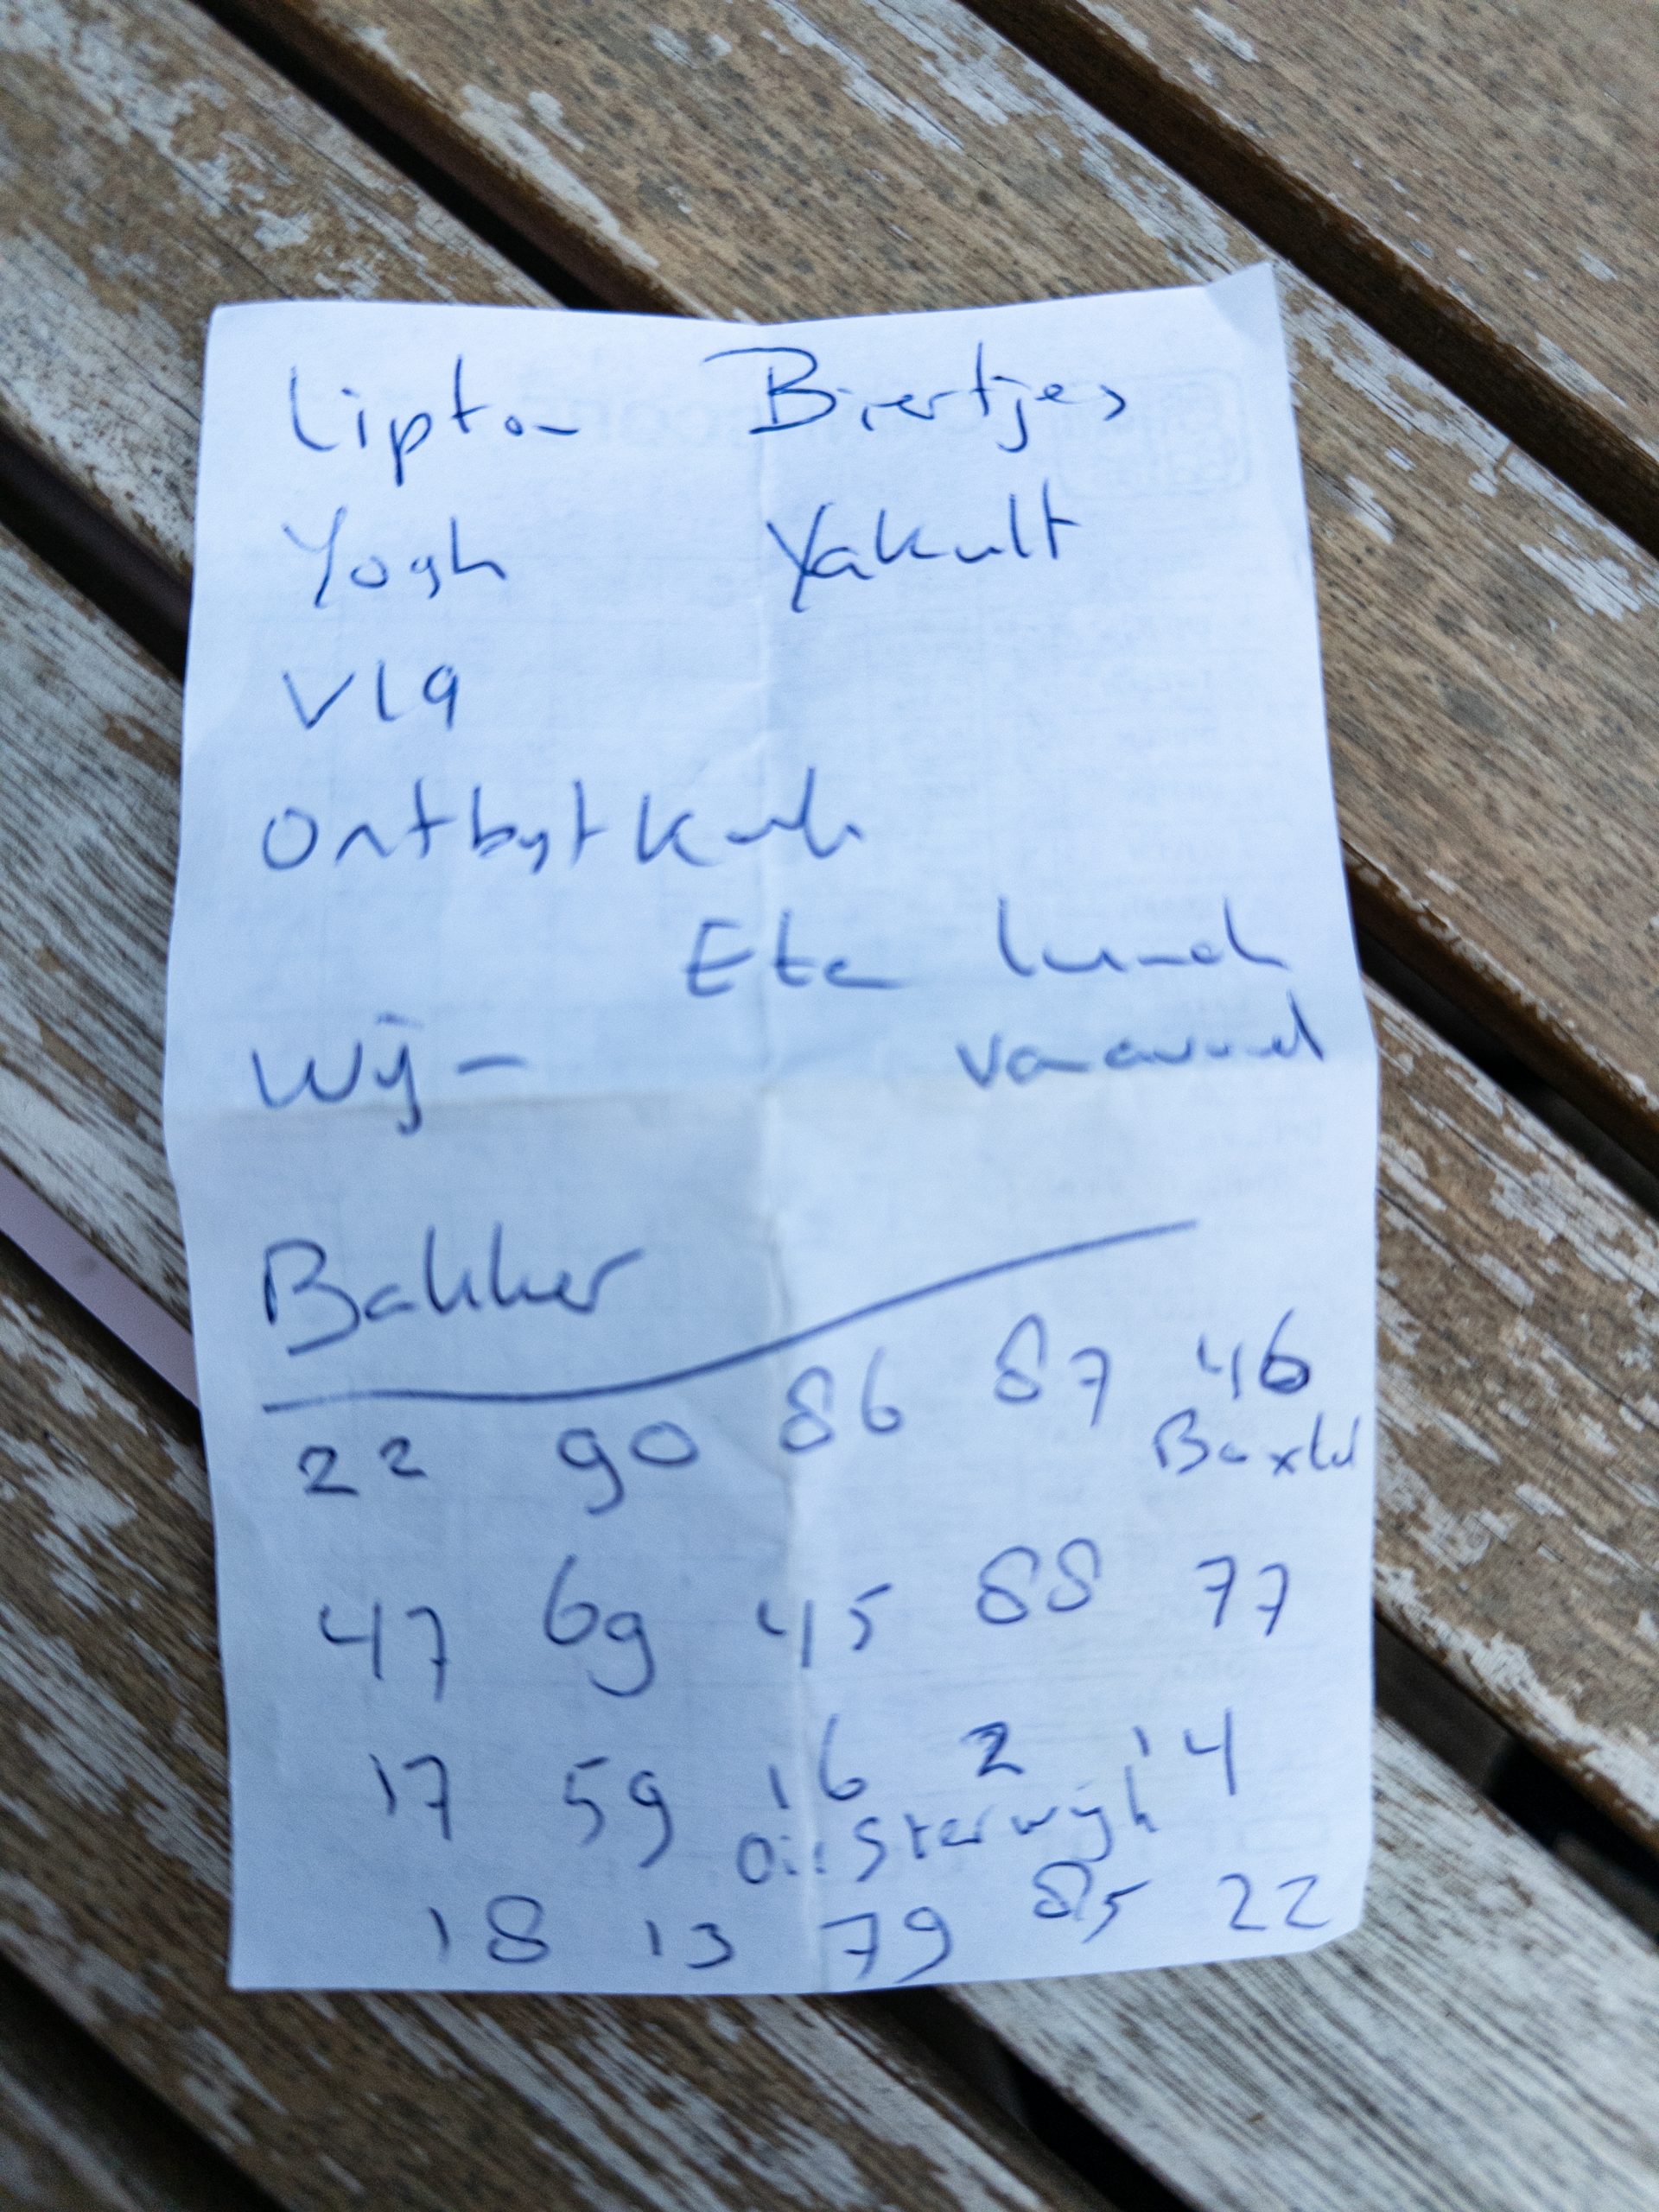 Lipton Biertjes
Yogh Yakult
Vla
Ontbytkoek
Eten lunch
Wijn vanavond
Bakker
22 90 86 87 46
Boxtel
47 69 45 88 77
17 59 16 2 14
Oisterwijk
18 13 79 85 22